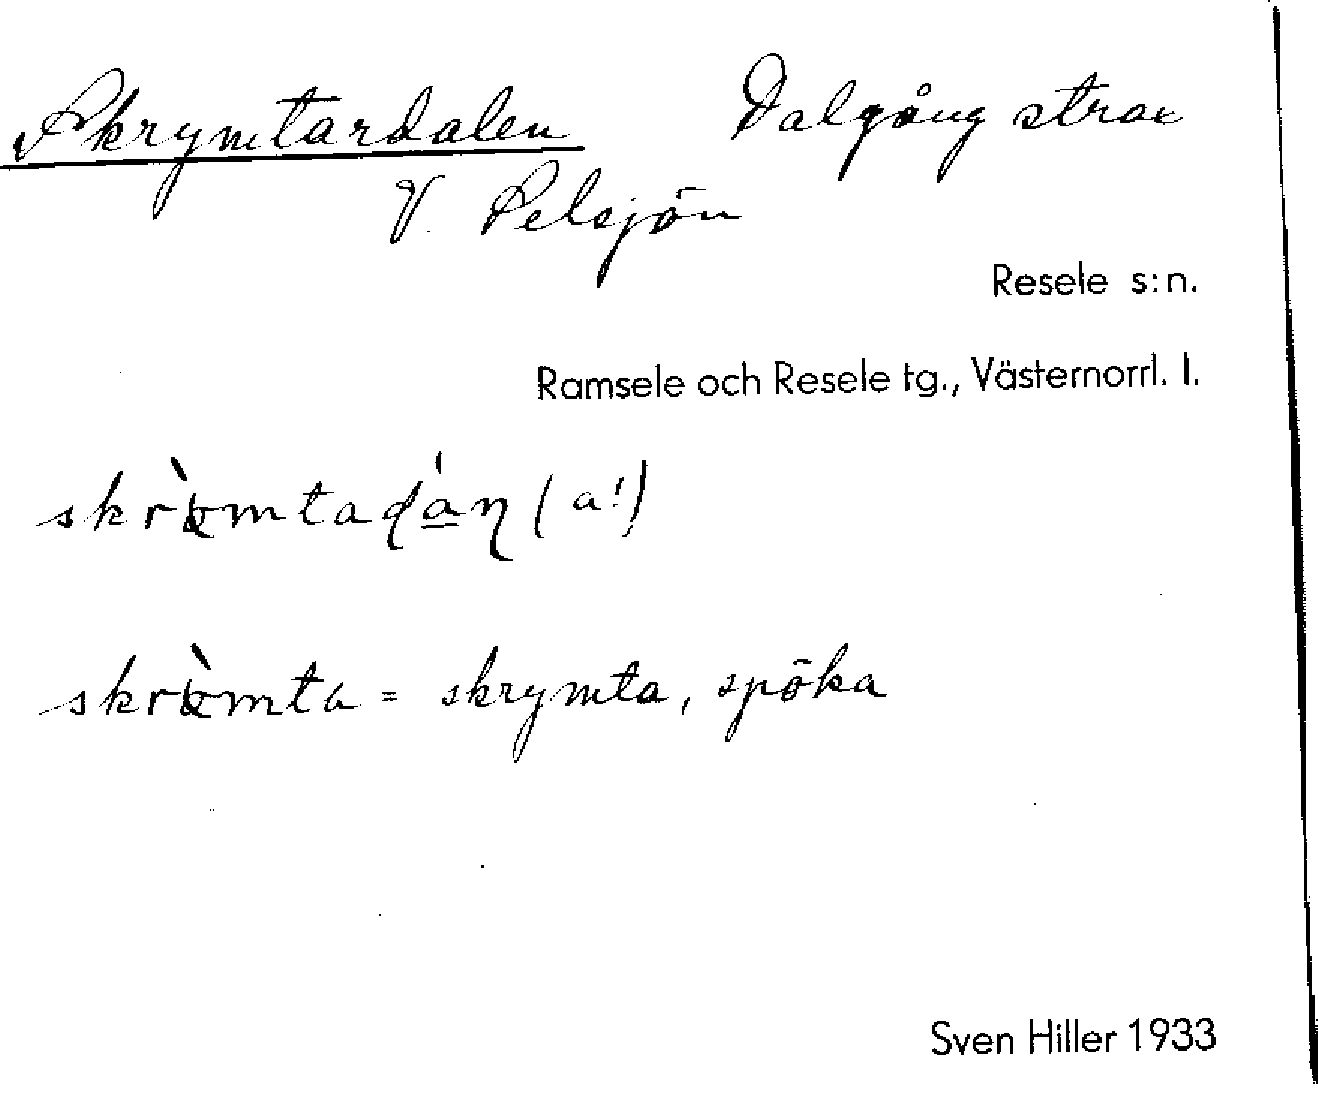 Skrymtardalen Dalgång strax
V. Selsjön
Resele s:n.
Ramsele och Resele tg., Västernorrl. l.
(a!)
= skrymta, spöka
Sven Hiller 1933